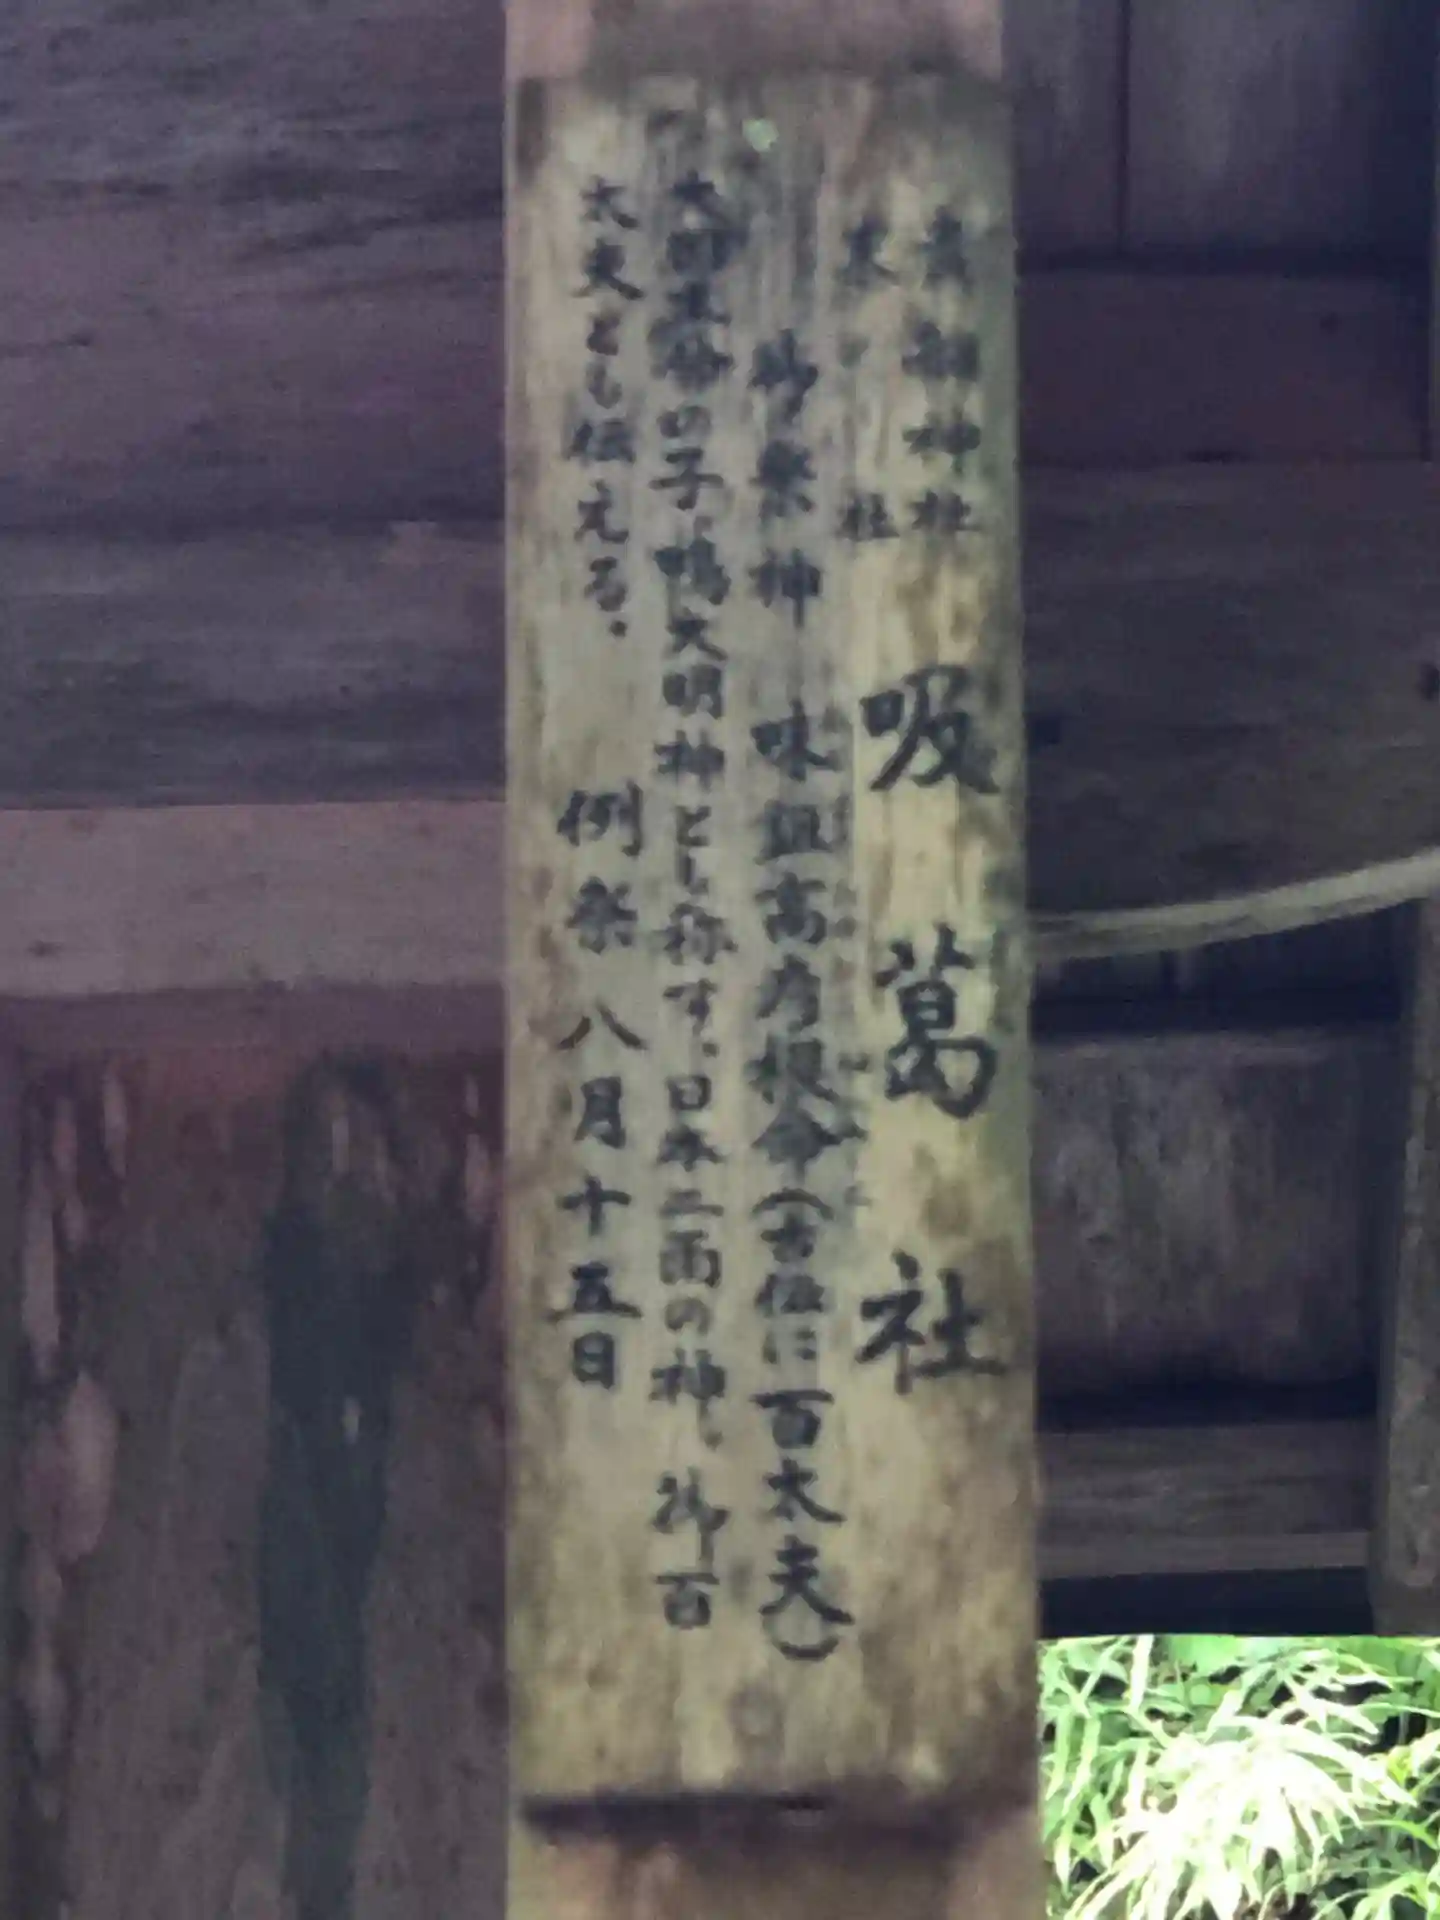 貴船神社
末社
吸葛社
御祭神 味耜高彦根命(古伝に百太夫)
大国主命の子、鴨大明神とし称す、日本二面の神。御百
太夫とも伝える。 例祭 八月十五日